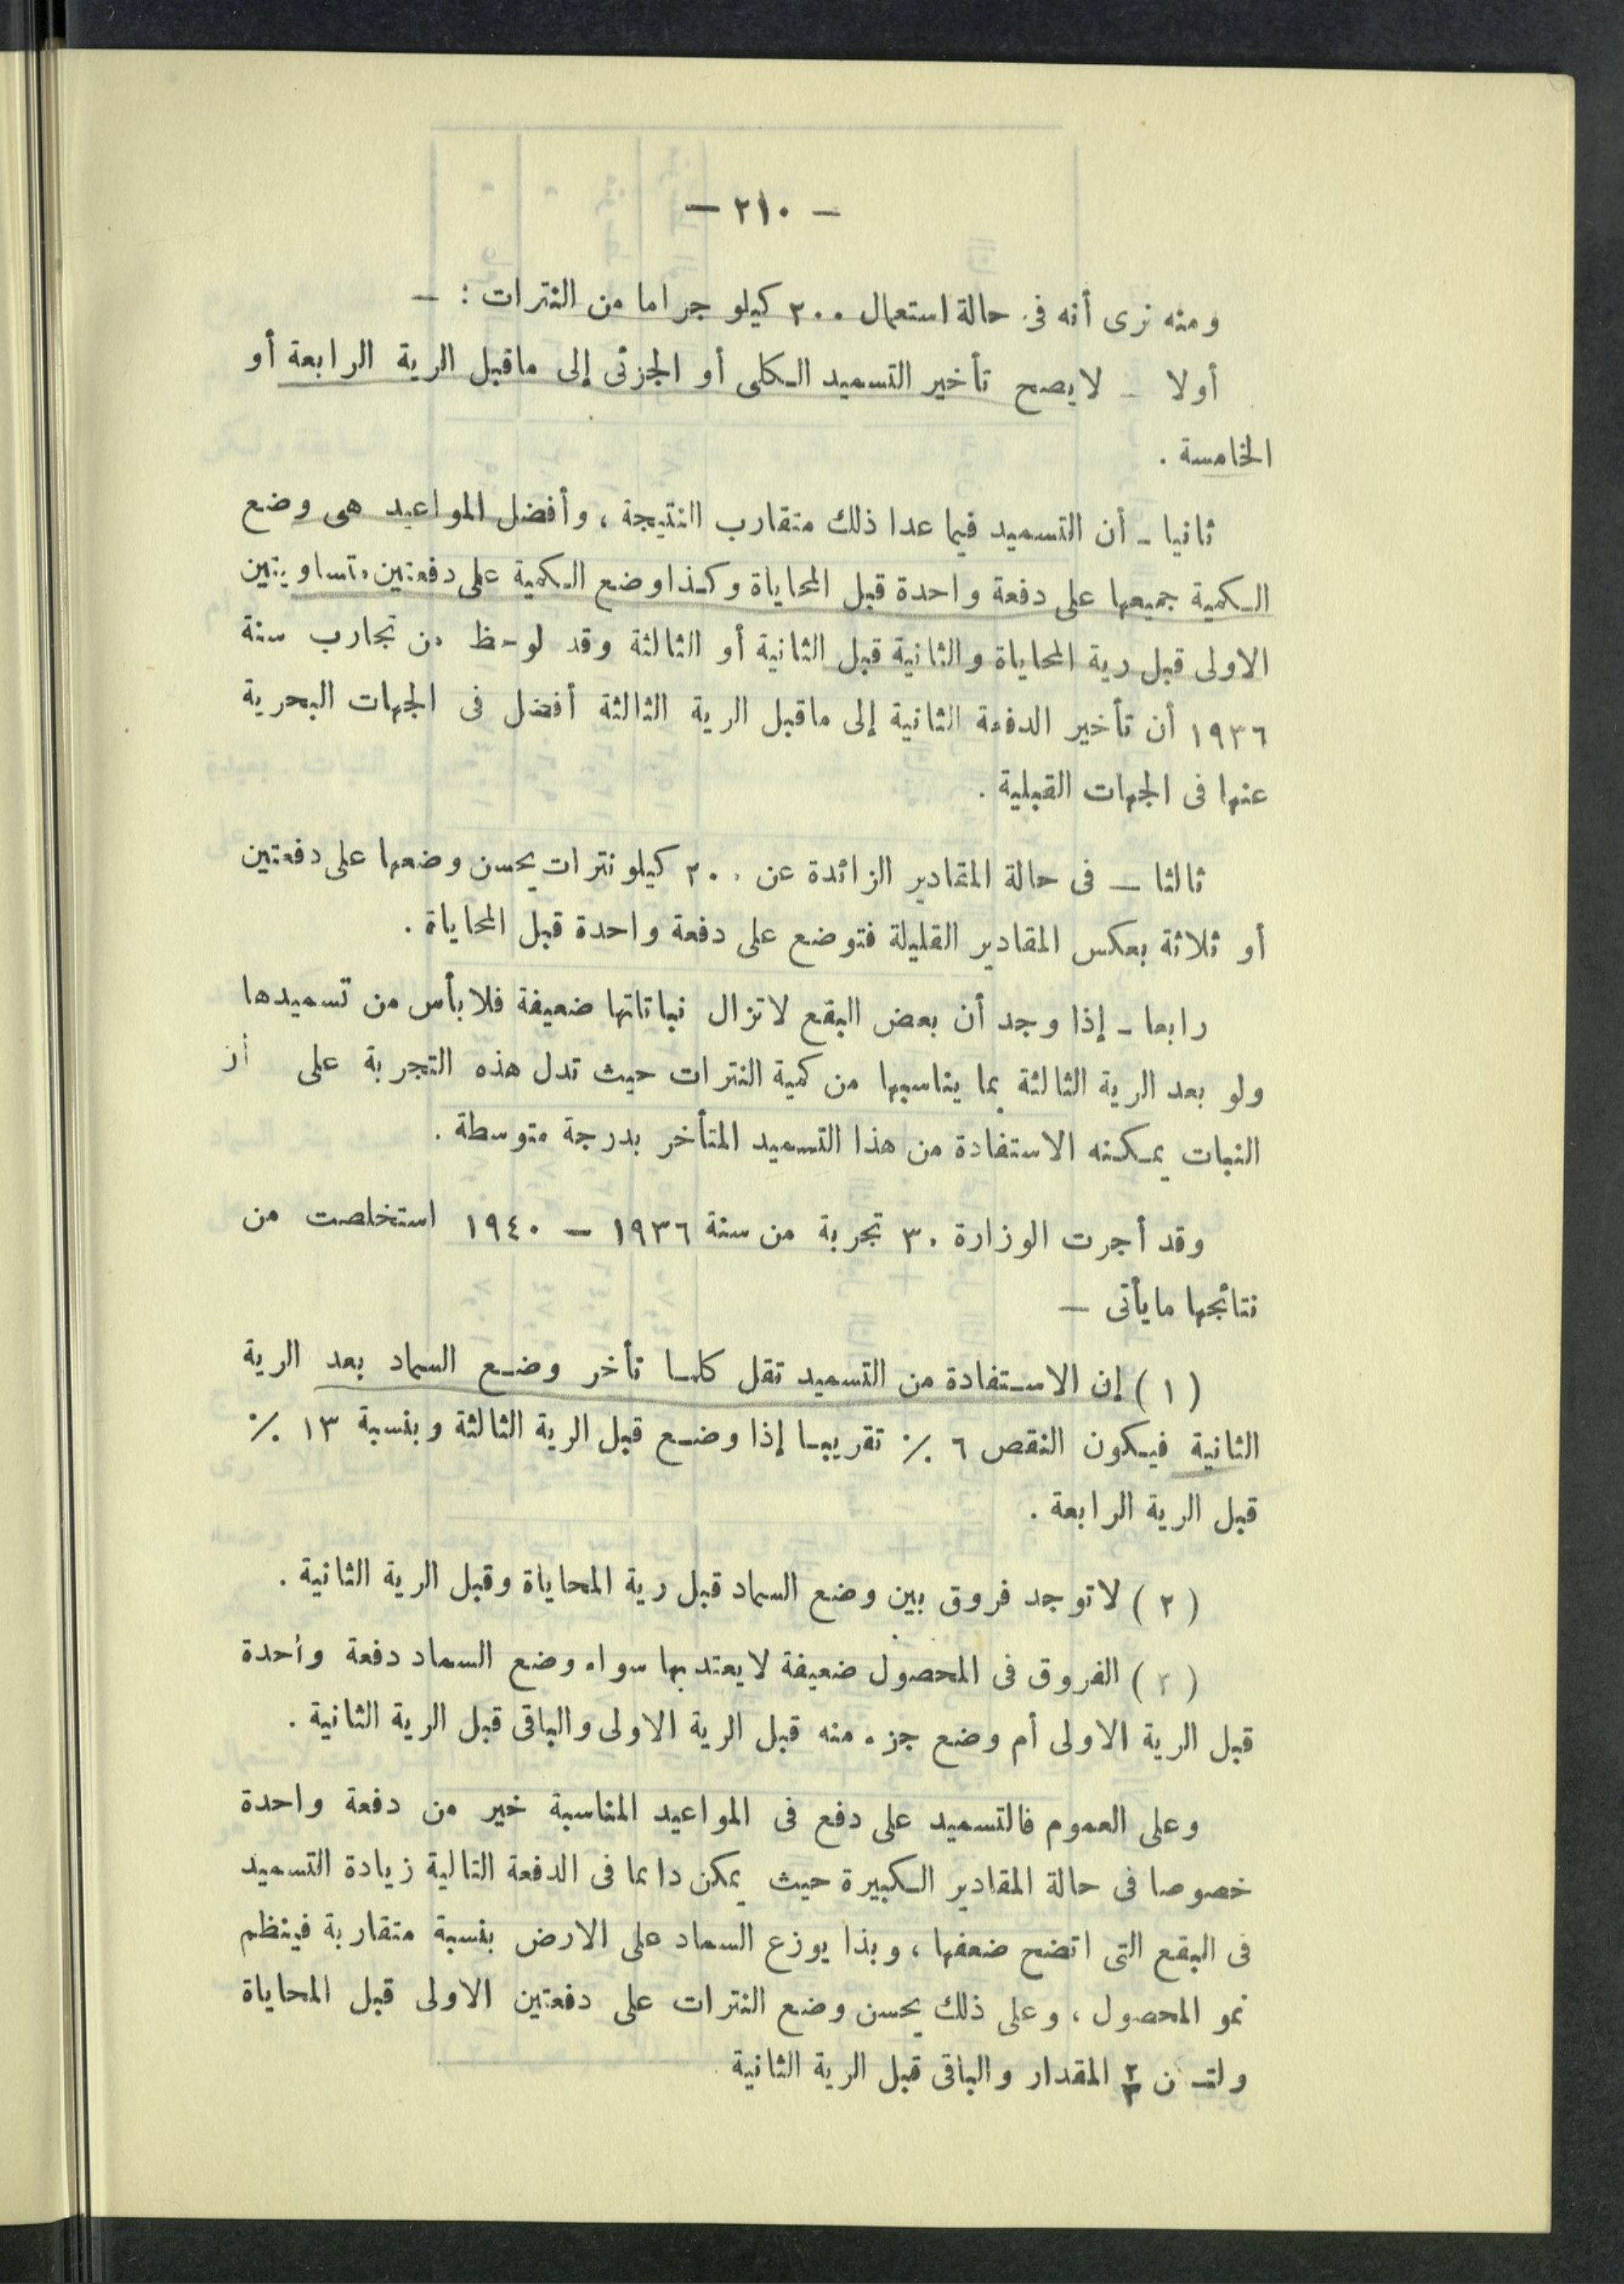 — ٢١٠ —
ومنه نرى أنه فى حالة استعمال ٢٠٠ كيلو جراما من النترات : —
أولا — لايصح تأخير التسميد الكلى أو الجزئى إلى ماقبل الرية الرابعة أو
الخامسة .
ثانيا - أن التسميد فيما عدا ذلك متقارب النتيجة ، وأفضل المواعيد هى وضع
الكمية جميعها على دفعة واحدة قبل المحاياة وكذا وضع الكمية على دفعتين متساويتين
الاولى قبل رية المحاياة والثانية قبل الثانية أو الثالثة وقد لوحظ من تجارب سنة
١٩٣٦ أن تأخير الدفعة الثانية إلى ماقبل الرية الثالثة أفضل فى الجهات البحرية
عنها فى الجهات القبلية .
ثالثا — فى حالة المقادير الزائدة عن ٢٠٠ كيلو نترات يحسن وضعها على دفعتين
أو ثلاثة بعكس المقادير القليلة فتوضع على دفعة واحدة قبل المحاياة .
رابعا - إذا وجد أن بعض البقع لاتزال نباتاتها ضعيفة فلا بأس من تسميدها
ولو بعد الرية الثالثة بما يناسبها من كمية النترات حيث تدل هذه التجربة على أن
النبات يمكنه الاستفادة من هذا التسميد المتأخر بدرجة متوسطة .
وقد أجرت الوزارة ٣٠ تجربة من سنة ١٩٣٦ — ١٩٤٠ استخلصت من
نتائجها مايأتى —
( ١ ) إن الاستفادة من التسميد تقل كلما تأخر وضع السماد بعد الرية
الثانية فيكون النقص ٦ ٪ تقريبا إذا وضع قبل الرية الثالثة وبنسبة ١٣ ٪
قبل الرية الرابعة .
( ٢ ) لاتوجد فروق بين وضع السماد قبل رية المحاياة وقبل الرية الثانية .
( ٣ ) الفروق فى المحصول ضعيفة لايعتد بها سواء وضع السماد دفعة واحدة
قبل الرية الاولى أم وضع جزء منه قبل الرية الاولى والباقى قبل الرية الثانية .
وعلى العموم فالتسميد على دفع فى المواعيد المناسبة خير من دفعة واحدة
خصوصا فى حالة المقادير الكبيرة حيث يمكن دائما فى الدفعة التالية زيادة التسميد
فى البقع التى اتضح ضعفها ، وبذا يوزع السماد على الارض بنسبة متقاربة فينظم
نمو المحصول ، وعلى ذلك يحسن وضع النترات على دفعتين الاولى قبل المحاياة
ولتكن ٢/٣ المقدار والباقى قبل الرية الثانية